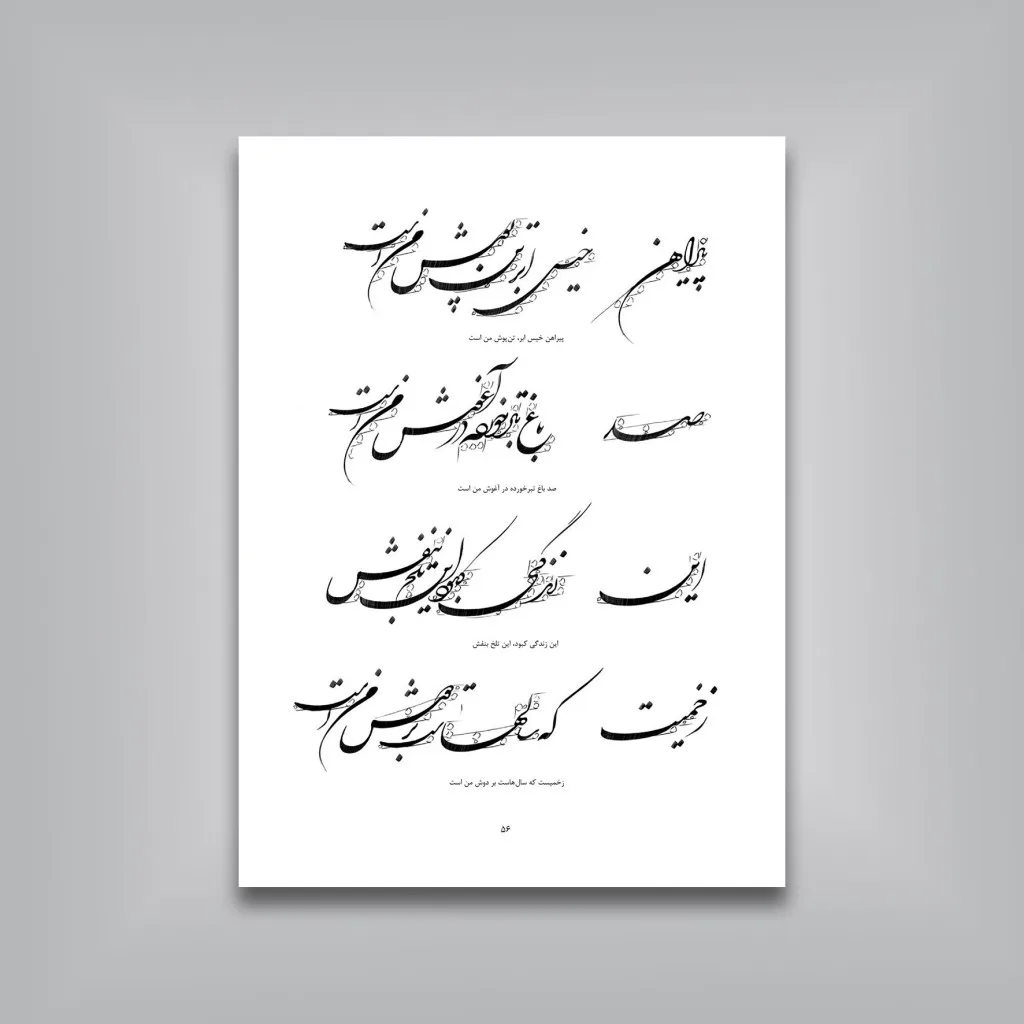 پیراهن خیس ابر، تن‌پوش من است
پیراهن خیس ابر، تن‌پوش من است
صد باغ تبرخورده در آغوش من است
صد باغ تبرخورده در آغوش من است
این زندگی کبود، این تلخ بنفش
این زندگی کبود، این تلخ بنفش
زخمیست که سال‌هاست بر دوش من است
زخمیست که سال‌هاست بر دوش من است
۵۶